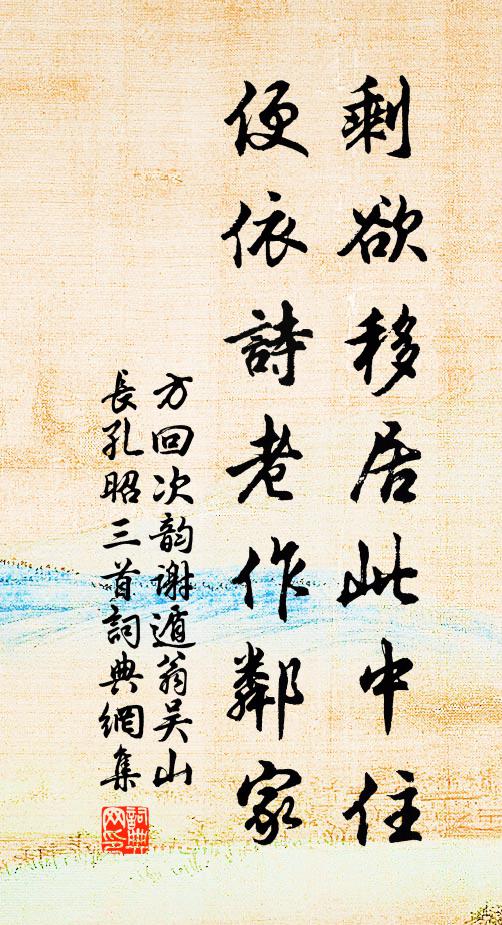 剩欲移居此中住
便依詩老作鄰家
方回次韵謝遁翁吴山
長孔昭三首詞典網集
詞典
网印